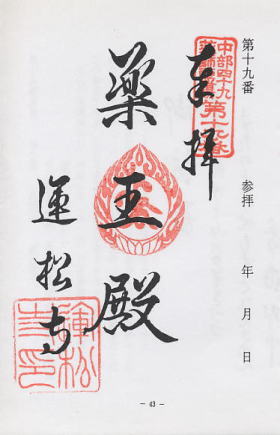 第十九番
参拝 年 月 日
中部四十九
薬師霊場第十九番
奉拝
薬王殿
運松寺
- 43 -